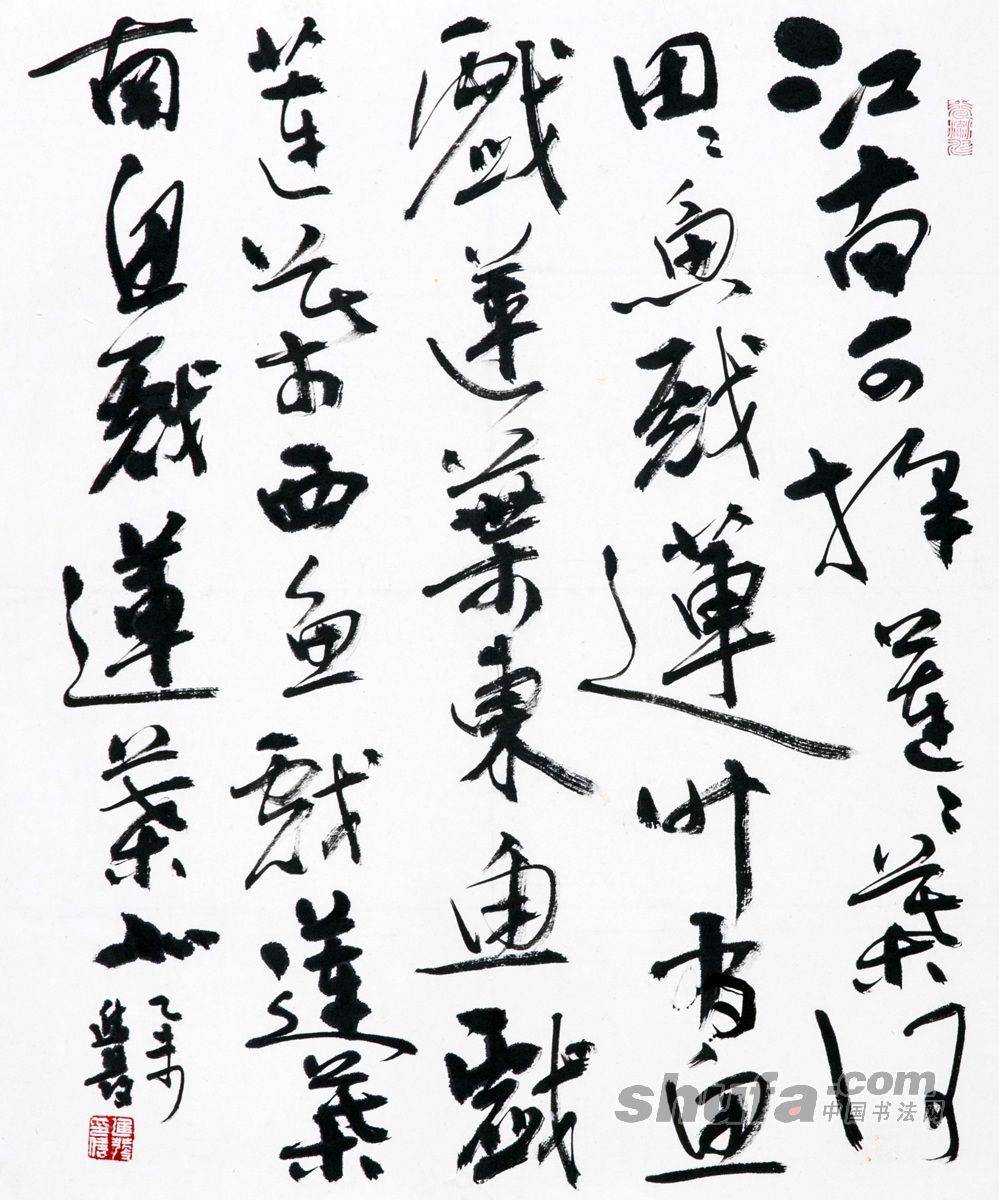 江南可採蓮〻葉何
田〻魚戲蓮叶间魚
戲蓮葉東魚戲
蓮葉西魚戲蓮葉
南魚戲蓮葉北
乙未
shufa.com
中国书法网